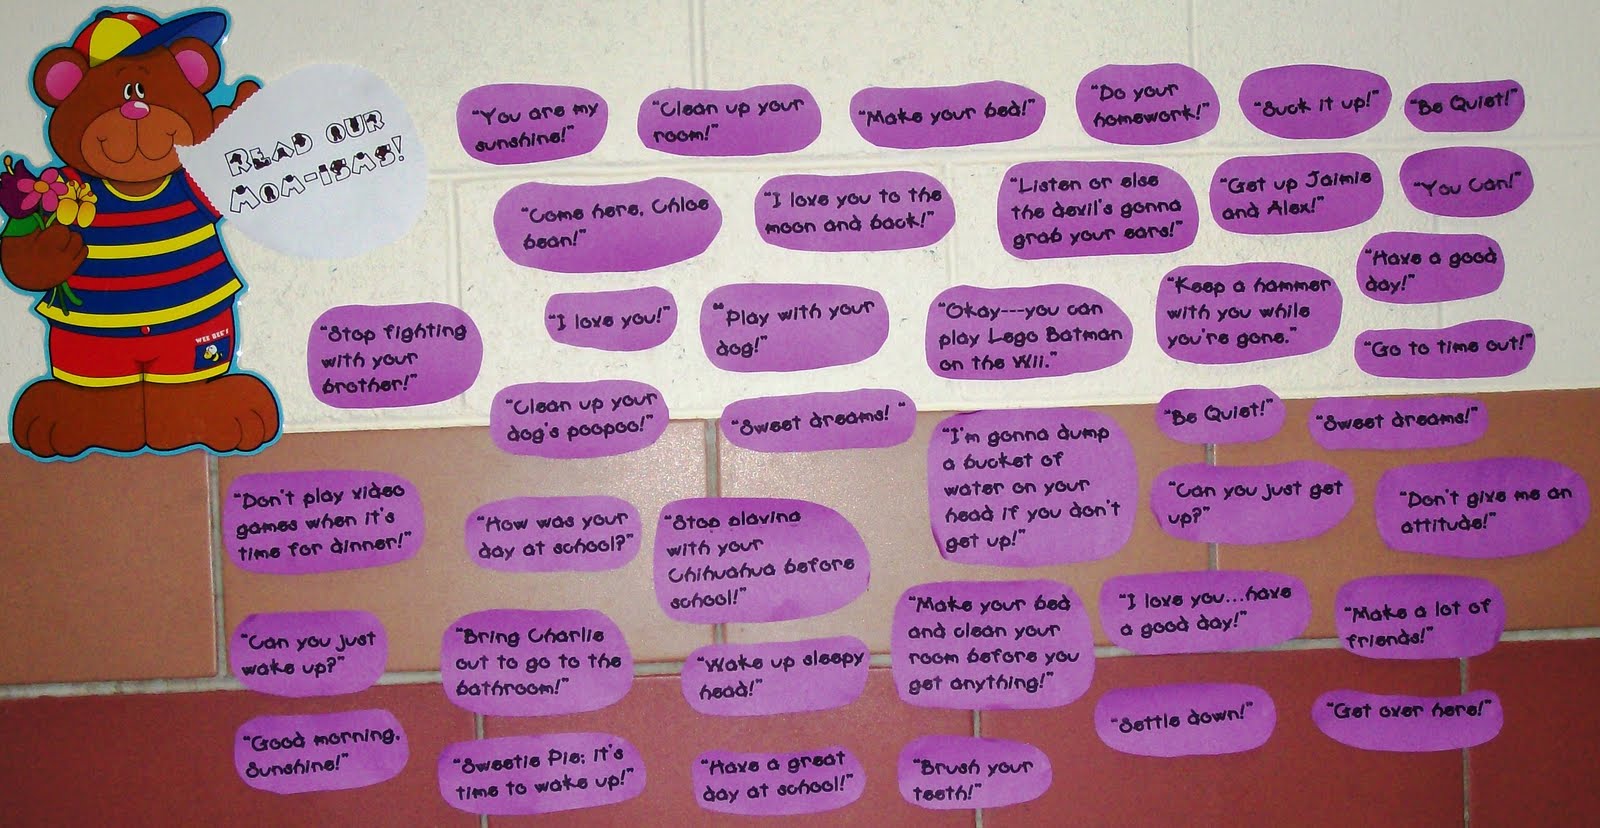 READ OUR
MOM-ISMS!
WEE BEE'S
"You are my
sunshine!"
"Clean up your
room!"
"Make your bed!"
"Do your
homework!"
"Suck it up!"
"Be Quiet!"
"Come here, Chloe
bean!"
"I love you to the
moon and back!"
"Listen or else
the devil's gonna
grab your ears!"
"Get up Jaimie
and Alex!"
"You Can!"
"Have a good
day!"
"Stop fighting
with your
brother!"
"I love you!"
"Play with your
dog!"
"Okay---you can
play Lego Batman
on the Wii."
"Keep a hammer
with you while
you're gone."
"Go to time out!"
"Clean up your
dog's poopoo!"
"Sweet dreams! "
"I'm gonna dump
a bucket of
water on your
head if you don't
get up!"
"Be Quiet!"
"Sweet dreams!"
"Don't play video
games when it's
time for dinner!"
"How was your
day at school?"
"Stop playing
with your
Chihuahua before
school!"
"Can you just get
up?"
"Don't give me an
attitude!"
"Can you just
wake up?"
"Bring Charlie
out to go to the
bathroom!"
"Wake up sleepy
head!"
"Make your bed
and clean your
room before you
get anything!"
"I love you...have
a good day!"
"Make a lot of
friends!"
"Good morning,
Sunshine!"
"Sweetie Pie; it's
time to wake up!"
"Have a great
day at school!"
"Brush your
teeth!"
"Settle down!"
"Get over here!"